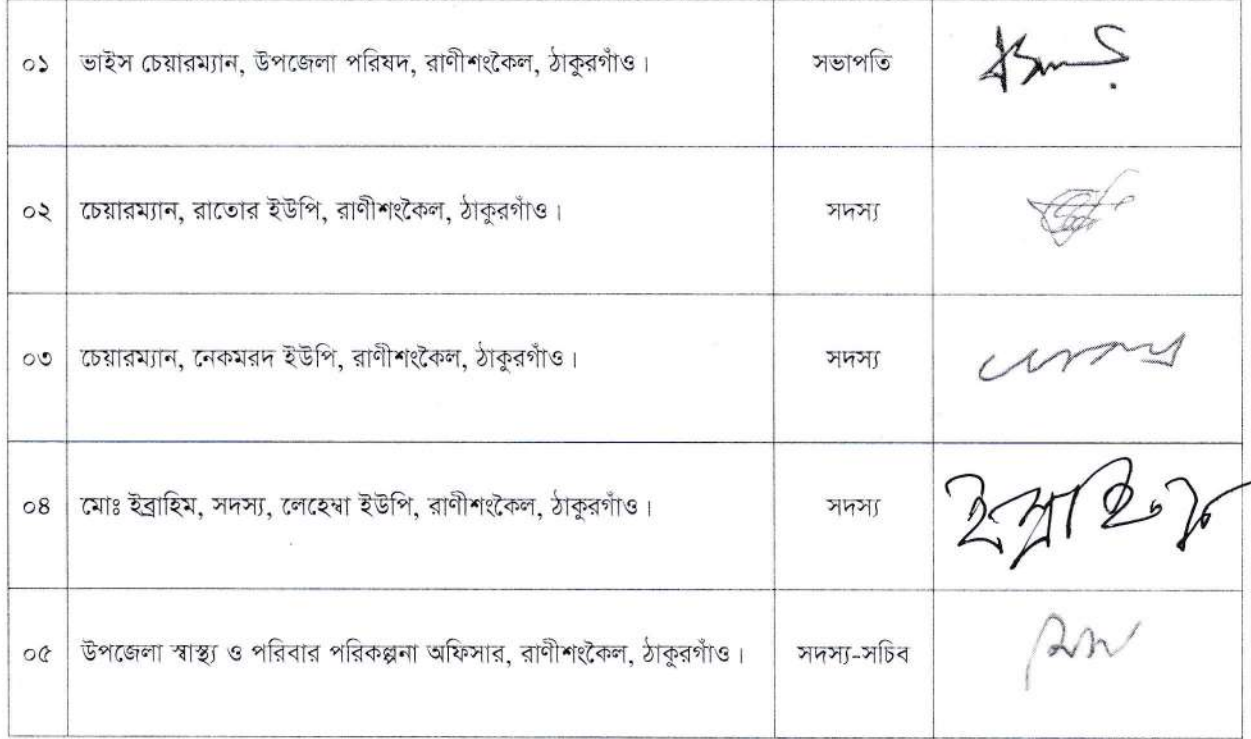 ০১ ভাইস চেয়ারম্যান, উপজেলা পরিষদ, রাণীশংকৈল, ঠাকুরগাঁও। সভাপতি
০২ চেয়ারম্যান, রাতোর ইউপি, রাণীশংকৈল, ঠাকুরগাঁও। সদস্য
০৩ চেয়ারম্যান, নেকমরদ ইউপি, রাণীশংকৈল, ঠাকুরগাঁও। সদস্য
০৪ মোঃ ইব্রাহিম, সদস্য, লেহেম্বা ইউপি, রাণীশংকৈল, ঠাকুরগাঁও। সদস্য ইব্রাহিম
০৫ উপজেলা স্বাস্থ্য ও পরিবার পরিকল্পনা অফিসার, রাণীশংকৈল, ঠাকুরগাঁও। সদস্য-সচিব